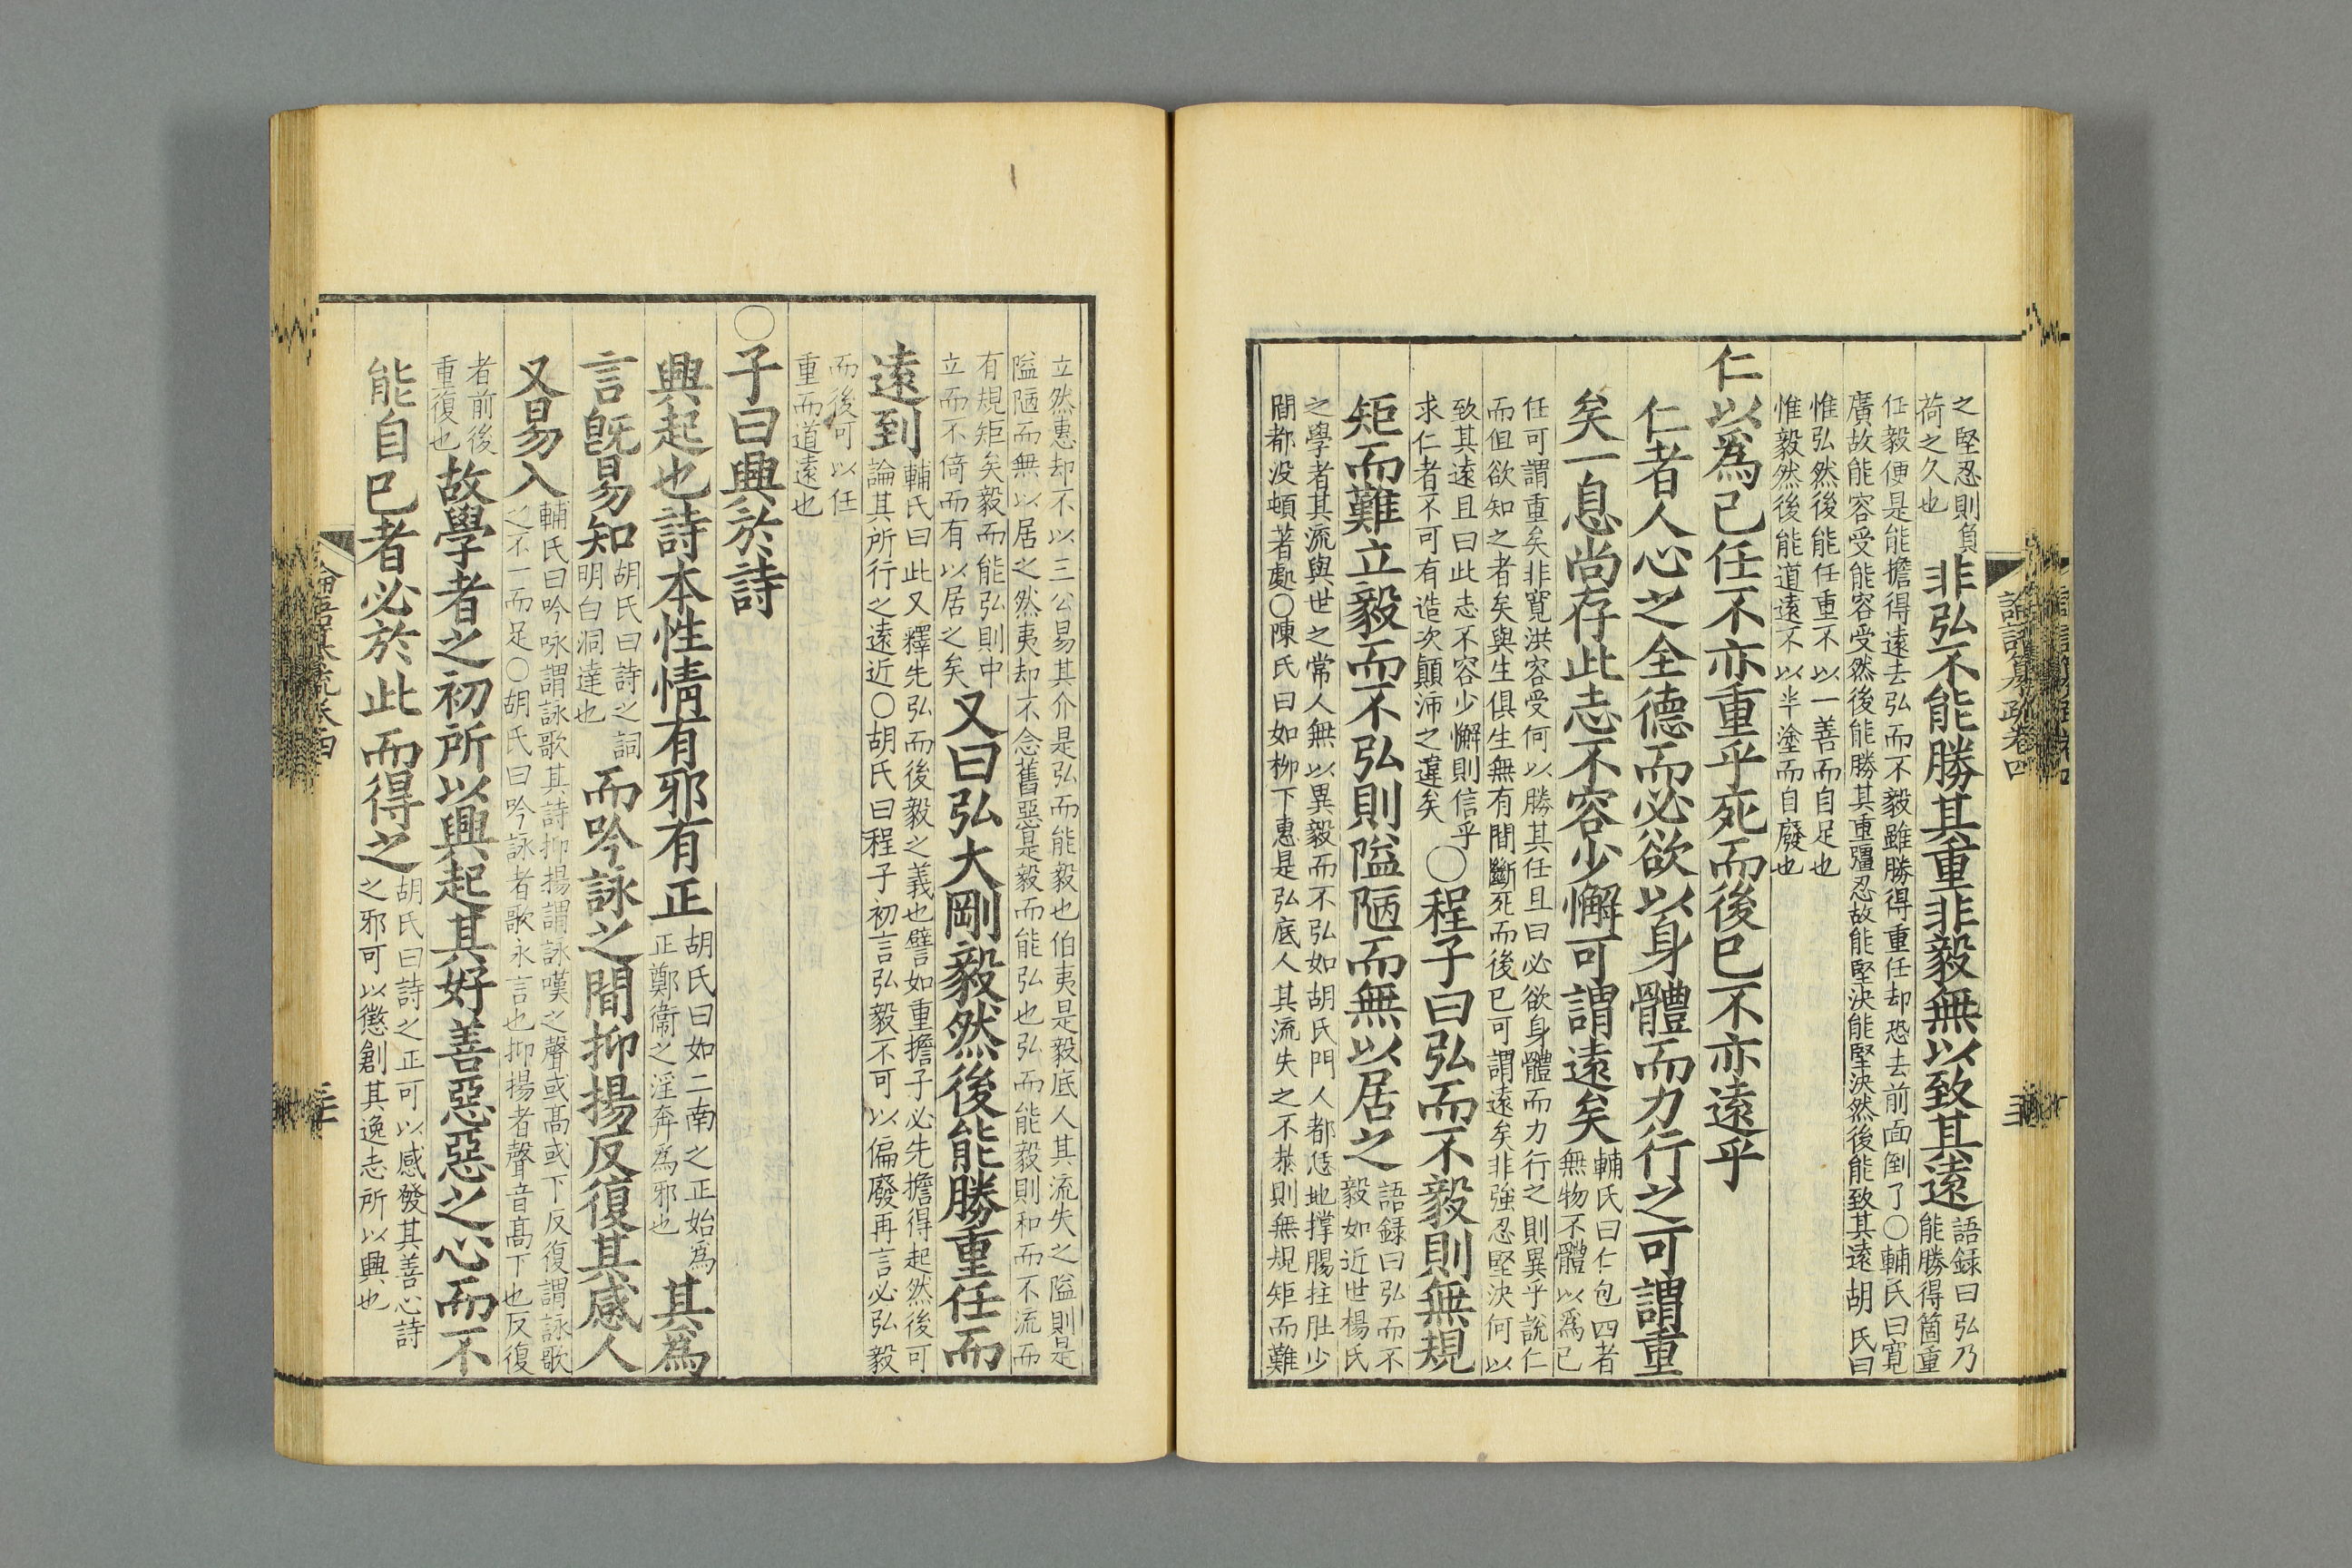 之堅忍則負
荷之久也
非弘不能勝其重非毅無以致其遠
語録曰弘乃
能勝得箇重
任毅便是能擔得遠去弘而不毅雖勝得重任却恐去前面倒了〇輔氏曰寛
廣故能容受能容受然後能勝其重彊忍故能堅決能堅決然後能致其遠胡氏曰
惟弘然後能任重不以一善而自足也
惟毅然後能道遠不以半塗而自廢也
仁以爲己任不亦重乎死而後已不亦遠乎
仁者人心之全德而必欲以身體而力行之可謂重
矣一息尚存此志不容少懈可謂遠矣
輔氏曰仁包四者
無物不體以爲已
任可謂重矣非寛洪容受何以勝其任且曰必欲身體而力行之則異乎說仁
而但欲知之者矣與生俱生無有間斷死而後已可謂遠矣非強忍堅決何以
致其遠且曰此志不容少懈則信乎
求仁者不可有造次顛沛之違矣
〇程子曰弘而不毅則無規
矩而難立毅而不弘則隘陋而無以居之
語録曰弘而不
毅如近世楊氏
之學者其流與世之常人無以異毅而不弘如胡氏門人都恁地撑腸拄肚少
間都没頓著處〇陳氏曰如柳下惠是弘底人其流失之不恭則無規矩而難
立然惠却不以三公易其介是弘而能毅也伯夷是毅底人其流失之隘則是
隘陋而無以居之然夷却不念舊惡是毅而能弘也弘而能毅則和而不流而
有規矩矣毅而能弘則中
立而不倚而有以居之矣
又曰弘大剛毅然後能勝重任而
遠到
輔氏曰此又釋先弘而後毅之義也譬如重擔子必先擔得起然後可
論其所行之遠近〇胡氏曰程子初言弘毅不可以偏廢再言必弘毅
而後可以任
重而道遠也
〇子曰興於詩
興起也詩本性情有邪有正
胡氏曰如二南之正始爲
正鄭衞之淫奔爲邪也
其爲
言旣易知
胡氏曰詩之詞
明白洞達也
而吟詠之間抑揚反復其感人
又易入
輔氏曰吟咏謂詠歌其詩抑揚謂詠嘆之聲或高或下反復謂詠歌
之不一而足〇胡氏曰吟詠者歌永言也抑揚者聲音高下也反復
者前後
重復也
故學者之初所以興起其好善惡惡之心而不
能自已者必於此而得之
胡氏曰詩之正可以感發其善心詩
之邪可以懲創其逸志所以興也